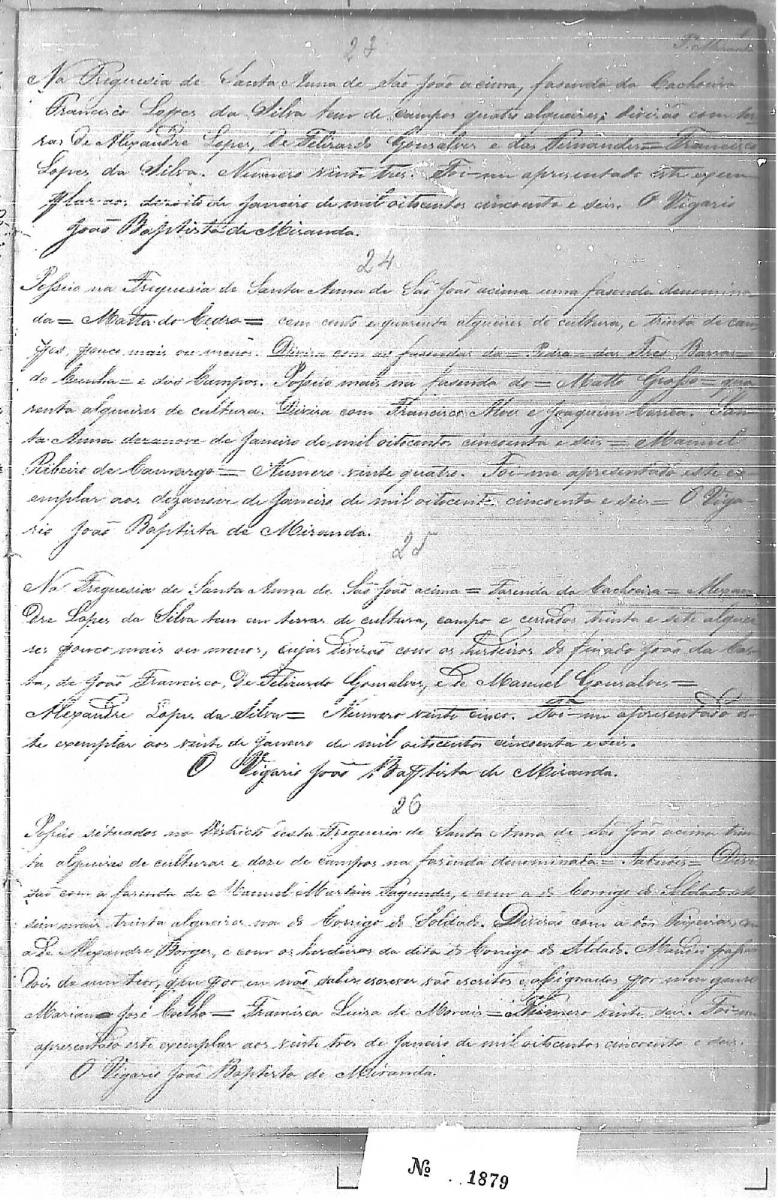 23
P. Miranda
Na Freguesia de Santa Anna de São João acima, fasenda da Cachoeira
Francisco Lopes da Silva tem de campos quatro alqueires; divisão com ter
ras de Alexandre Lopes, de Felizardo Gonsalves e das Fernandes = Francisco
Lopes da Silva. Numero vinte tres. Foi-me apresentado este exem
plar aos dezoito de Janeiro de mil oitocentos cincoenta e seis. O Vigario
João Baptista de Miranda.
24
Possuo na Freguesia de Santa Anna de São João acima uma fasenda denomina
da = Matta do Cedro = com cento e quarenta alqueires de cultura, e trinta de cam
pos, pouco mais ou menos. Divisa com as fasendas da = Pedra = das Tres Barras =
do Cunha = e dos Campos. Possuo mais na fasenda do = Matto Grosso = qua
renta alqueires de cultura. Divisa com Francisco Alves e Joaquim Corrêa. San
ta Anna dezanove de Janeiro de mil oitocentos cincoenta e seis = Manuel
Ribeiro de Camargo = Numero vinte quatro. Foi-me apresentado este ex
emplar aos dezanove de Janeiro de mil oitocents cincoenta e seis = O Viga
rio João Baptista de Miranda.
25
Na Freguesia de Santa Anna de São João acima = Fasenda da Cachoeira = Alexan
dre Lopes da Silva tem em terras de cultura, campo e cerrados trinta e sete alquei
res pouco mais ou menos, cujas divisão com os herdeiros do finado João da Cos
ta, de João Francisco, de Felizardo Gonsalves, e de Manuel Gonsalves =
Alexandre Lopes da Silva = Numero vinte cinco. Foi-me apresentado es
te exemplar aos vinte de Janeiro de mil oitocentos cincoenta e seis.
O Vigario João Baptista de Miranda.
26
Possuo situados no Districto desta Freguesia de Santa Anna de São João acima trin
ta alqueires de culturas e doze de campos na fasenda denominada = = Divi
são com a fasenda de Manuel Martins Fagundes, e com a do Corrigo do Soldado
sim mais trinta alqueires na do Corrigo do Soldado. Divisão com a dos Teixeiras, com
a de Alexandre Borges, e com os herdeiros da dita do Corrigo do Soldado. Mandei passar
dois de um teor, que por eu não saber escrever vão escritos e assignados por meu genro
Mariano José Coelho = Francisca Luisa de Morais = Numero vinte seis. Foi-me
apresentado este exemplar aos vinte tres de Janeiro de mil oitocentos cincoenta e seis.
O Vigario João Baptista de Miranda.
Nº 1879